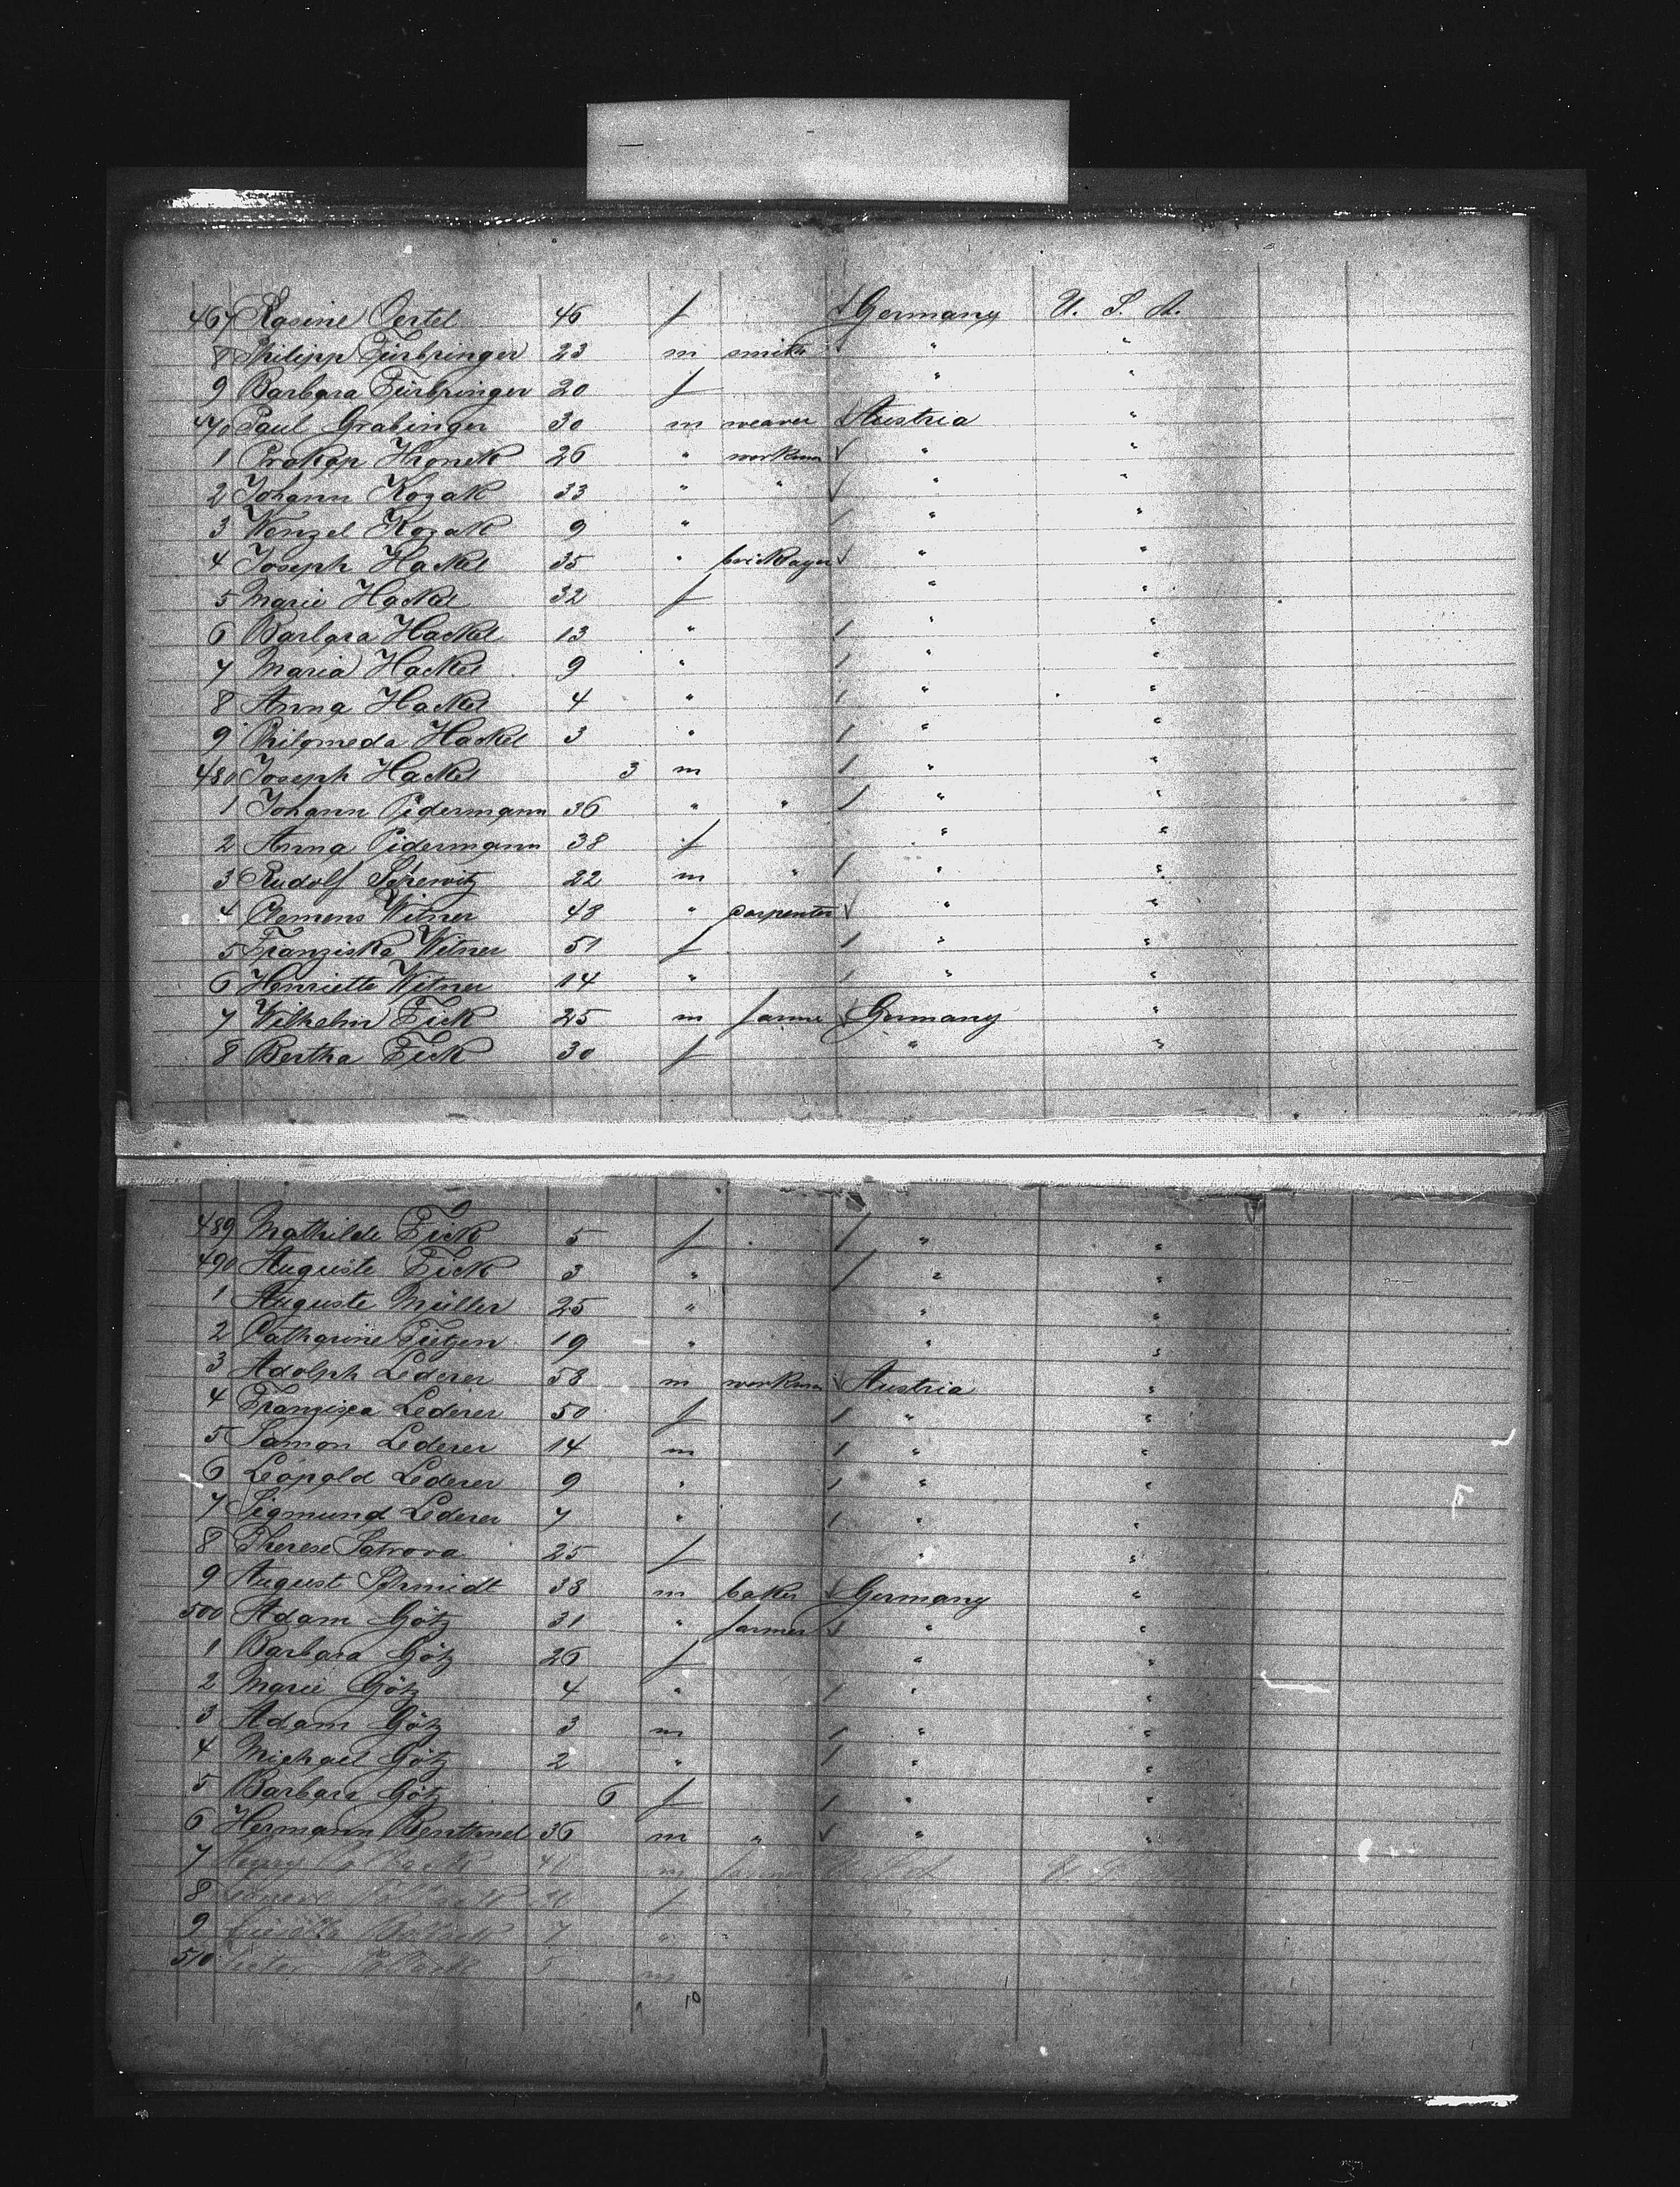 467 Rosine Oertel 46 f Germany U. S. A.
8 Philipp Fürbringer 23 m smith " "
9 Barbara Fürbringer 20 f " "
470 Paul Grabinger 30 m weaver Austria "
1 Prokop Hronek 26 " workman " "
2 Johann Kozak 33 " " " "
3 Wenzel Kozak 9 " " "
4 Joseph Hackel 35 " bricklayer " "
5 Marie Hackel 32 f " "
6 Barbara Hackel 13 " " "
7 Maria Hackel 9 " " "
8 Anna Hackel 4 " " "
9 Philomeda Hackel 3 " " "
480 Joseph Hackel 3 m " "
1 Johann Pidermann 36 " " " "
2 Anna Pidermann 38 f " "
3 Rudolf 22 m " " "
4 Clemens Witner 48 " carpenter " "
5 Franziska Witner 51 f " "
6 Henriette Witner 14 " " "
7 Wilhelm Fick 25 m farmer Germany "
8 Bertha Fick 30 f " "
489 Mathilde Fick 5 f " "
490 Auguste Fick 3 " " "
1 Auguste Müller 25 " " "
2 Catharine 19 " " "
3 Adolph Lederer 58 m workman Austria "
4 Franziska Lederer 50 f " "
5 Samon Lederer 14 m " "
6 Leopold Lederer 9 " " "
7 Sigmund Lederer 7 " " "
8 Therese Satrova 25 f " "
9 August Schmidt 38 m baker Germany "
500 Adam Götz 31 " farmer " "
1 Barbara Götz 26 f " "
2 Marie Götz 4 " " "
3 Adam Götz 3 m " "
4 Michael Götz 2 " " "
5 Barbara Götz 6 f " "
6 Hermann Benthnel 36 m " " "
7 m
8 f
9 7 "
510 5 m
10